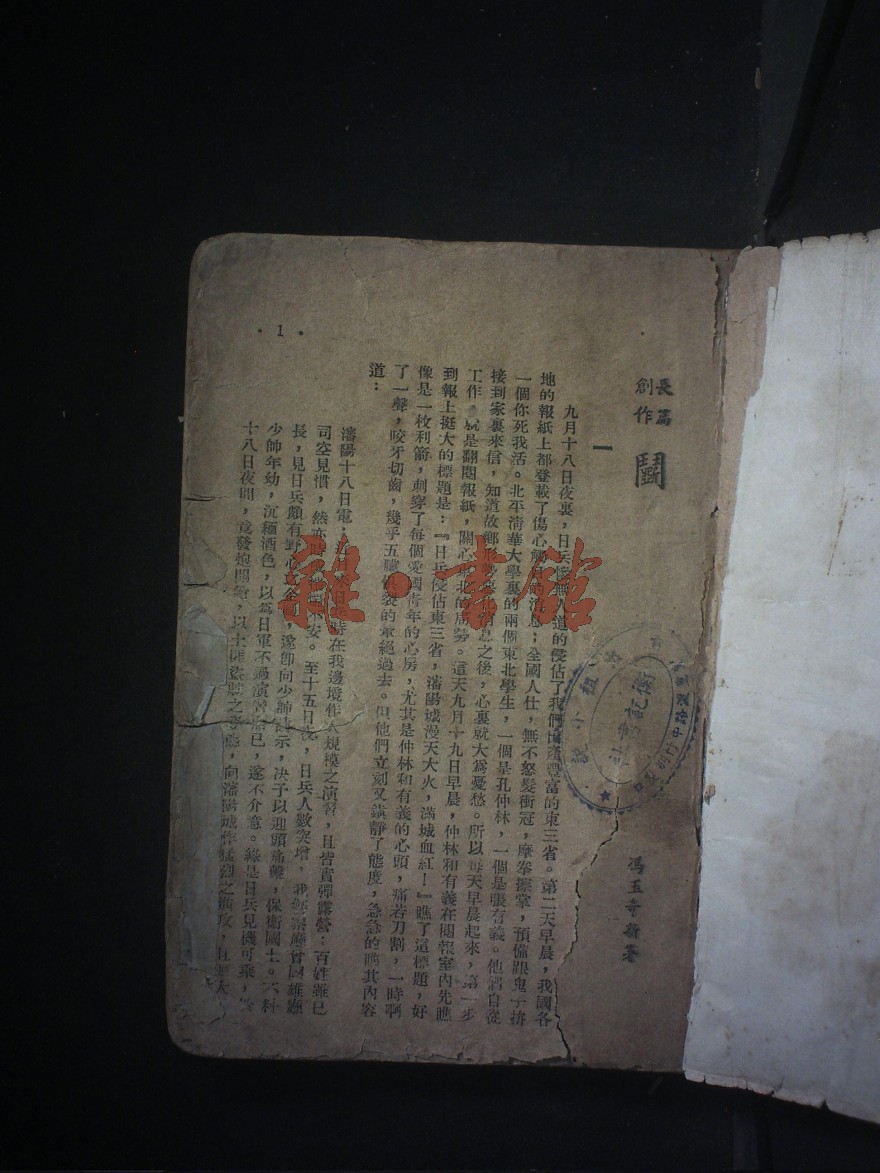 長篇
創作
鬪
馮玉奇新著
一
九月十八日夜裏，日兵慘無人道的侵佔了我們出產豐富的東三省。第二天早晨，我國各
地的報紙上都登載了傷心觸目的消息；全國人仕，無不怒髮衝冠，摩拳擦掌，預備跟鬼子拚
一個你死我活。北平清華大學裏的兩個東北學生，一個是孔仲林，一個是張有義。他們自從
接到家裏來信，知道故鄉消息之後，心裏就大爲憂愁。所以每天早晨起來，第一步
工作，就是翻閱報紙，關心東北的局勢。這天九月十九日早晨，仲林和有義在閱報室內先瞧
到報上挺大的標題是：『日兵侵佔東三省，瀋陽城漫天大火，滿城血紅！』瞧了這標題，好
像是一枚利箭，刺穿了每個愛國青年的心房，尤其是仲林和有義的心頭，痛若刀割，一時啊
了一聲，咬牙切齒，幾乎五臟俱裂的氣絕過去。但他們立刻又鎮靜了態度，急急的瞧其內容
道：
瀋陽十八日電：近日來日時在我邊境作大規模之演習，且皆實彈露營；百姓雖已
司空見慣，然亦不安。至十五日夜，日兵人數突增，我
長，見日兵頗有野心，遂卽向少帥請示，决予以迎頭痛擊，保衛國土。不料
少帥年幼，沉緬酒色，以爲日軍不過演習而已，遂不介意。緣是日兵見機可乘，
十八日夜間，竟發炮開槍，以土匪盜賊之姿態，向瀋陽城作猛烈之進攻，
• 1 •
衡記書社
小說
雜·書館